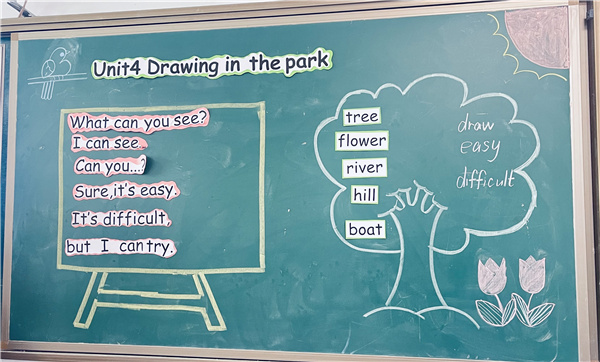 Unit4 Drawing in the park
What can you see?
I can see..
Can you...?
Sure,it's easy.
It's difficult,
but I can try.
tree
flower
river
hill
boat
draw
easy
difficult